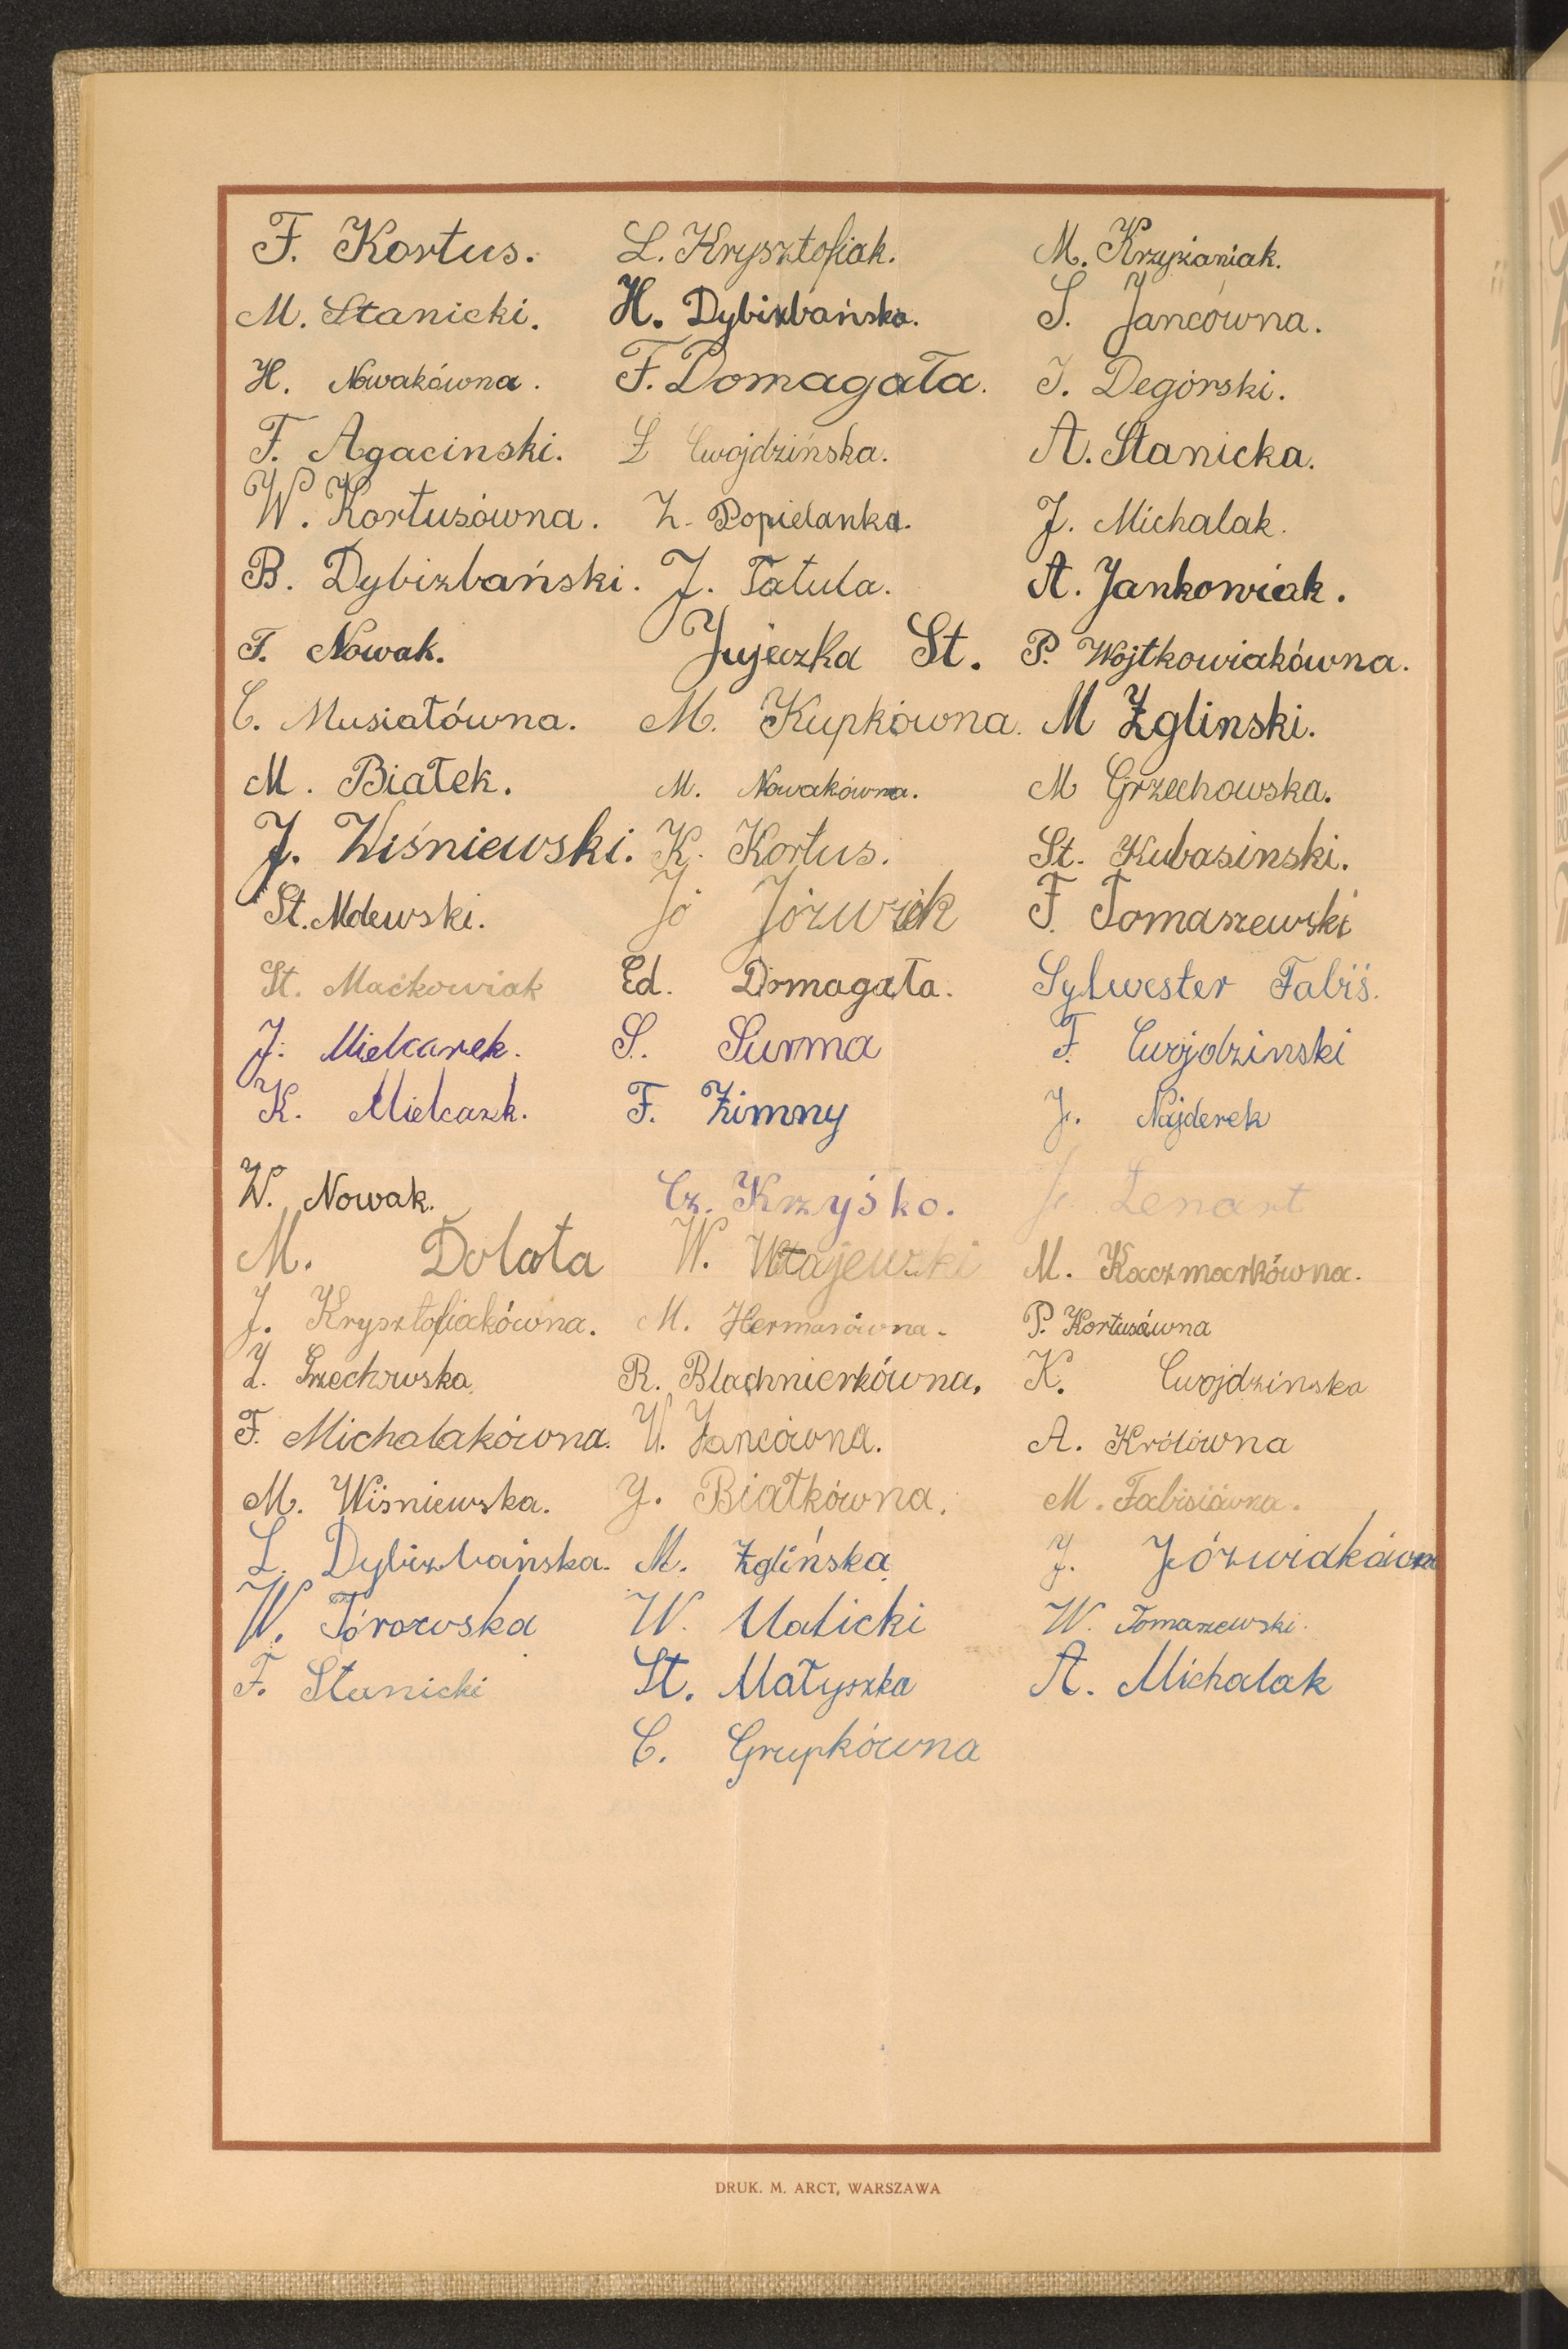 F. Kortus. L. Krysztofiak. M. Krzyżaniak.
M. Stanicki. H. Dybizbańska. S. Jancówna.
H. Nowakówna. F. Domagała. I. Degórski.
F. Agacinski. Ł Cwojdzińska. A. Stanicka.
W. Kortusówna. Z. Popielanka. J. Michalak.
B. Dybizbański. J. Tatula. A. Jankowiak.
F. Nowak. Jujeczka St. P. Wojtkowiakówna.
C. Musiałówna. M. Kupkówna. M Żglinski.
M. Białek. M. Nowakówna. M Grzechowska.
J. Wiśniewski. K. Kortus. St. Kubasinski.
St. Mdewski. Jó Józwiek F. Tomaszewski
St. Maćkowiak Ed. Domagała. Sylwester Fabiś.
J. Mielcarek. S. Surma F. Cwojdzinski
K. Mielcarek. F. Zimny J. Najderek
W. Nowak. Cz. Krzyśko. J. Lenart
M. Dolata W. M. Kaczmarkówna.
J. Krysztofiakówna. M. Hermanówna. P. Kortusówna
Z. Grzechowska. R. Blachnierkówna. K. Cwojdzinska
F. Michalakówna. U. Jancówna. A. Królówna
M. Wiśniewska. J. Białkówna. M. Fabisiówna.
L. Dybizbańska. M. Żglińska J. Józwiakówna
W. Tórzewska W. Malicki W. Tomaszewski.
F. Stanicki St. Matyszka A. Michalak
C. Grupkówna
DRUK. M. ARCT, WARSZAWA